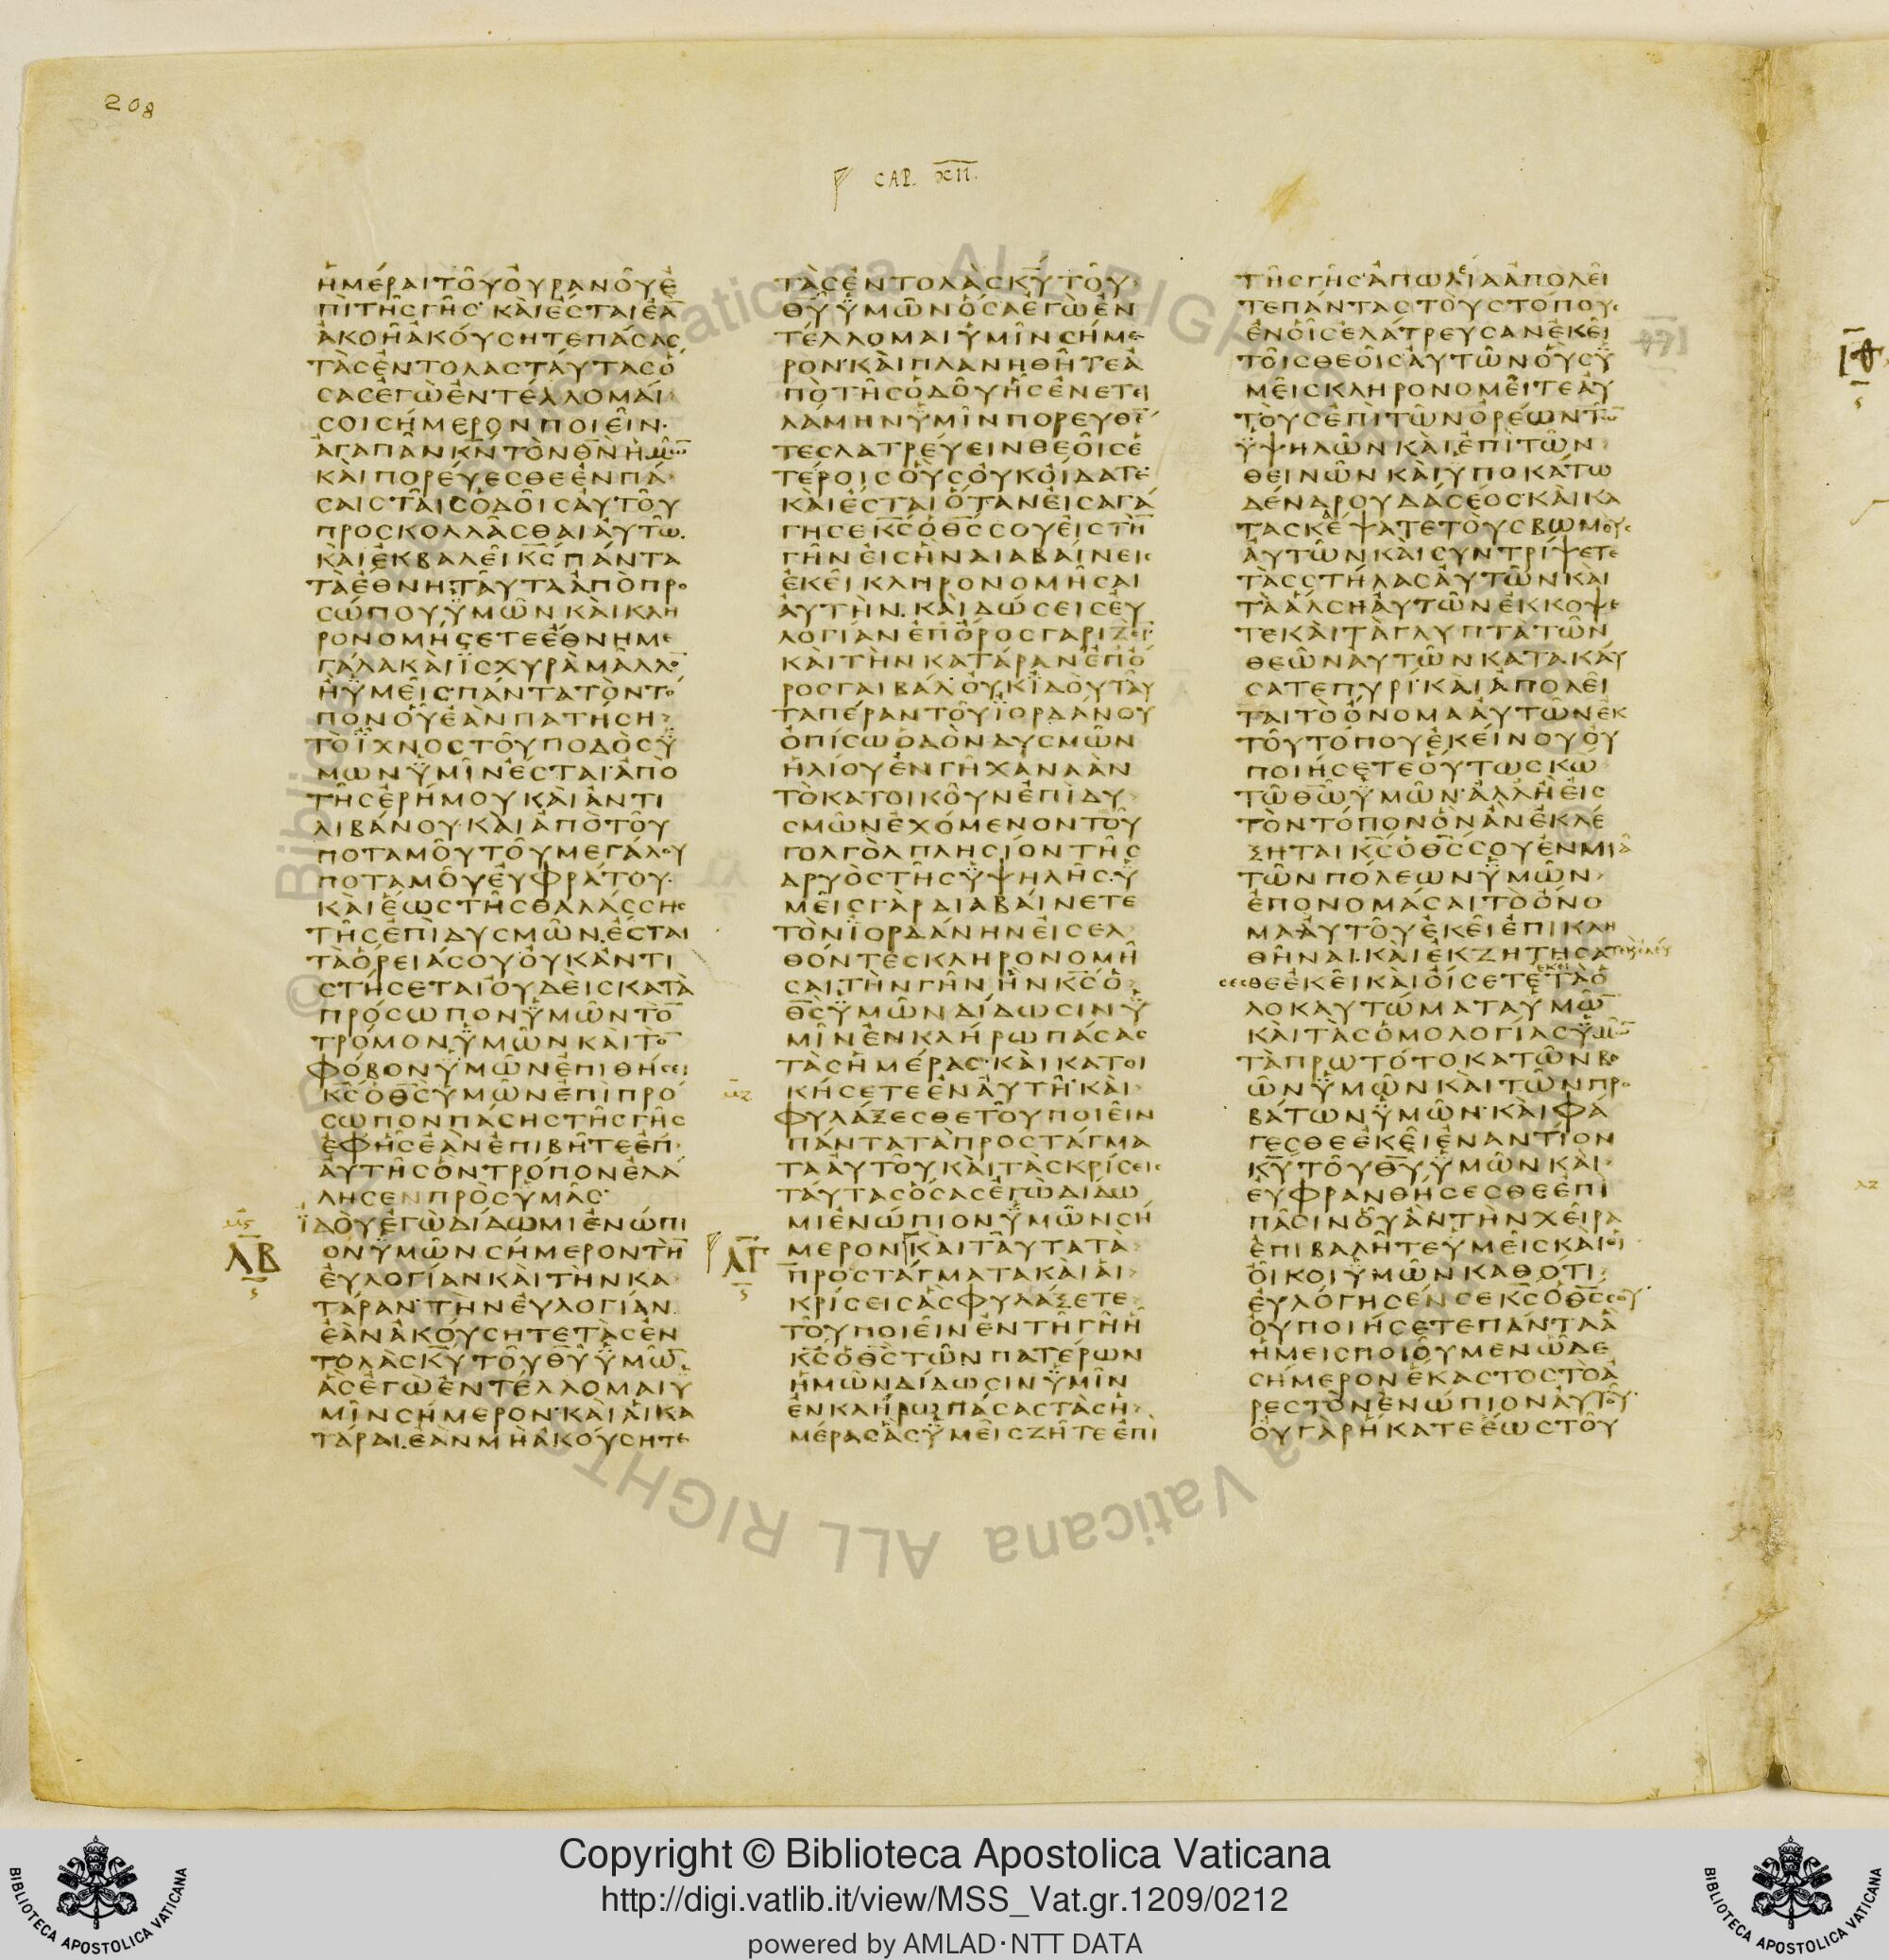 208
CAP. XII.
ἡμέραιτοῦοὐρανοῦἐ
πὶτῆςγῆς· καὶἔσταιἐὰ̅
ἀκοῇἀκούσητεπάσας
τὰςἐντολαςταύταςὅ
σαςἐγὼἐντέλλομαί
σοισήμερονποιεῖν·
ἀγαπᾶνκ̅ν̅τὸνθ̅ν̅ἡμῶ̅
καὶπορεύεσθεἐνπά
σαιςταῖςὁδοῖςαὐτοῦ
προσκολλᾶσθαιαὐτῶ.
καὶἐκβαλεῖκ̅ς̅πάντα
τὰἔθνηταῦταἀπὸπρο
σώπουϋμῶν.καὶκλη
ρονομήσετεἔθνημε
γάλακαὶϊσχυρὰμᾶλλο̅
ἢϋμεῖς·πάντατὸντό
πονοὗἐὰνπατήση
τὸἴχνοςτοῦποδὸςϋ
μωνϋμῖνἔσται·ἀπὸ
τῆςἐρήμουκαὶἀντι
λιβάνου·καὶἀπὸτοῦ
ποταμοῦτοῦμεγάλου
ποταμοῦεὐφράτου·
καὶἕωςτῆςθαλάσσης
τῆςἐπὶδυσμῶν.ἔσται
τὰὅρειάσου·οὐκἀντι
στήσεταιοὐδεὶςκατὰ
πρόσωπονϋμῶντὸ̅
τρόμονϋμῶνκαὶτὸ̅
φόβονϋμῶνἐπιθήσει
κ̅ς̅ὁθ̅ς̅ϋμῶνἐπὶπρό
σωπονπάσηςτῆςγῆς
ἐφῆςἐὰνἐπιβῆτεἐπ
αὐτῆςὃντρόπονἐλά
λησενπρὸςϋμᾶς·
ἰδοὺἐγὼδίδωμιἐνώπι
ΛΒ
ονϋμῶνσήμεροντὴ̅
εὐλογίανκαὶτὴνκα
τάραν·τὴνεὐλογίαν
ἐὰνἀκούσητετὰςἐν
τολὰςκ̅υ̅τοῦθ̅υ̅ϋμῶ̅
ἃςἐγὼἐντέλλομαιϋ
μῖνσήμερον·καὶαἱκα
τάραι.ἐὰνμὴἀκούσητε
τὰςἐντολὰςκ̅υ̅τοῦ
θ̅υ̅ϋμῶνὅσαἐγὼἐν
τέλλομαιϋμῖνσήμε
ρον·καὶπλανηθῆτεἀ
πὸτῆςὁδοῦἧςἐνετει
λάμηνϋμῖνπορευθέ̅
τεςλατρεύεινθεοῖςἑ
τέροιςοὓςοὐκοἴδατε·
καὶἔσταιὅτανεἰσαγά
γησεκ̅ς̅ὁθ̅ς̅σουεἰςτὴ̅
γῆνεἰςἣνδιαβαίνεις
ἐκεῖκληρονομῆσαι
αὐτὴν.καὶδώσειςεὐ
λογίανἐπὄροςγαριζεί̅
καὶτὴνκατάρανἐπὄ
ροςγαιβάλ·οὐκἰδοὺταῦ
ταπέραντοῦϊορδάνου
ὀπίσωὁδὸνδυσμῶν
ἡλίουἐνγῆχαναὰν
τὸκατοικοῦνἐπὶδυ
σμῶνἐχόμενοντοῦ
γολγὸλπλησίοντῆς
δρυὸςτῆςϋψηλῆς.ϋ
μεῖςγὰρδιαβαίνετε
τὸνϊορδάνηνεἰσελ
θόντεςκληρονομῆ
σαιτὴνγῆνἣνκ̅ς̅ὁ
θ̅ς̅ϋμῶνδίδωσινϋ
μῖνἐνκλήρωπάσας
τὰςἡμέρας·καὶκατοι
μζ
κήσετεἐναὐτῆ·καὶ
φυλάξεσθετοῦποιεῖν
πάντατὰπροστάγμα
τααὐτοῦκαὶτὰςκρίσεις
ταύταςὅσαςἐγὼδίδω
μιἐνώπιονϋμῶνσή
ΛΓ
μερονκαὶταῦτατὰ
προστάγματακαὶαἱ
κρίσειςἃςφυλάξετε
τοῦποιεῖνἐντῆγῆἧ
κ̅ς̅ὁθ̅ς̅τῶνπατέρων
ἡμὼνδίδωσινϋμῖν
ἐνκλήρωπάσαςτὰςἡ
μέραςἃςϋμεῖςζῆτεἐπὶ
τῆςγῆς·ἀπωλίαἀπολεῖ
τεπάνταςτοὺςτόπους
ἐνοἷςἐλάτρευσανἐκεῖ
τοῖςθεοῖςαὐτῶνοὓςϋ
μεῖςκληρονομεῖτεαὐ
τοὺςἐπὶτῶνὀρέωντῶ̅
ϋψηλῶνκαὶἐπὶτῶν
θεινῶνκαὶϋποκάτω
δένδρουδάσεος·καὶκα
τασκέψατετοὺςβωμούς
αὐτῶνκαὶσυντρίψετε
τὰςστήλαςαὐτῶνκαὶ
τὰἄλσηαὐτῶνἐκκοψε
τεκαὶτὰγλυπτὰτῶν
θεῶναὐτῶνκατακαύ
σατεπυρί·καὶἀπολεῖ
ταιτὸὄνομααὐτῶνἐκ
τοῦτόπουἐκείνουοὐ
ποιήσετεοὕτωςκω
τῶθ̅ω̅ϋμῶν·ἀλλἢεἰς
τὸντόπονὃνἂνἐκλέ
ξηταικ̅ς̅ὁθ̅ς̅σουἐνμιᾶ
τῶνπόλεωνϋμῶν
ἐπονομάσαιτὸὄνο
μααὐτοῦἐκεῖἐπικλη
θῆναι.καὶἐκζητήσατε
σεσθεἐκεῖκαὶοἴσετέτὰὁ
ἐκεῖ
λοκαυτώματαϋμῶ̅
καὶτὰςὁμολογίαςϋμῶ̅
τὰπρωτότοκατῶνβο
ῶνϋμῶνκαὶτῶνπρο
βάτωνϋμῶν·καὶφά
γεσθεἐκεῖἐναντίον
κ̅υ̅τοῦθ̅υ̅ϋμῶνκαὶ
εὐφρανθήσεσθεἐπὶ
πᾶσινοὗἂντὴνχεῖρα
ἐπιβαλῆτεϋμεῖςκαὶοἱ
οἶκοιϋμῶνκαθοτι
εὐλόγησένσεκ̅ς̅ὁθ̅ς̅σου·
οὐποιήσετεπάνταἃ
ἡμεῖςποιοῦμενὧδε
σήμερονἕκαστοςτὸἀ
ρεστὸνἐνώπιοναὐτοῦ·
οὐγὰρἥκατεἕωςτοῦ
Copyright © Biblioteca Apostolica Vaticana
http://digi.vatlib.it/view/MSS_Vat.gr.1209/0212
powered by AMLAD·NTT DATA
BIBLIOTECA APOSTOLICA VATICANA
BIBLIOTECA APOSTOLICA VATICANA